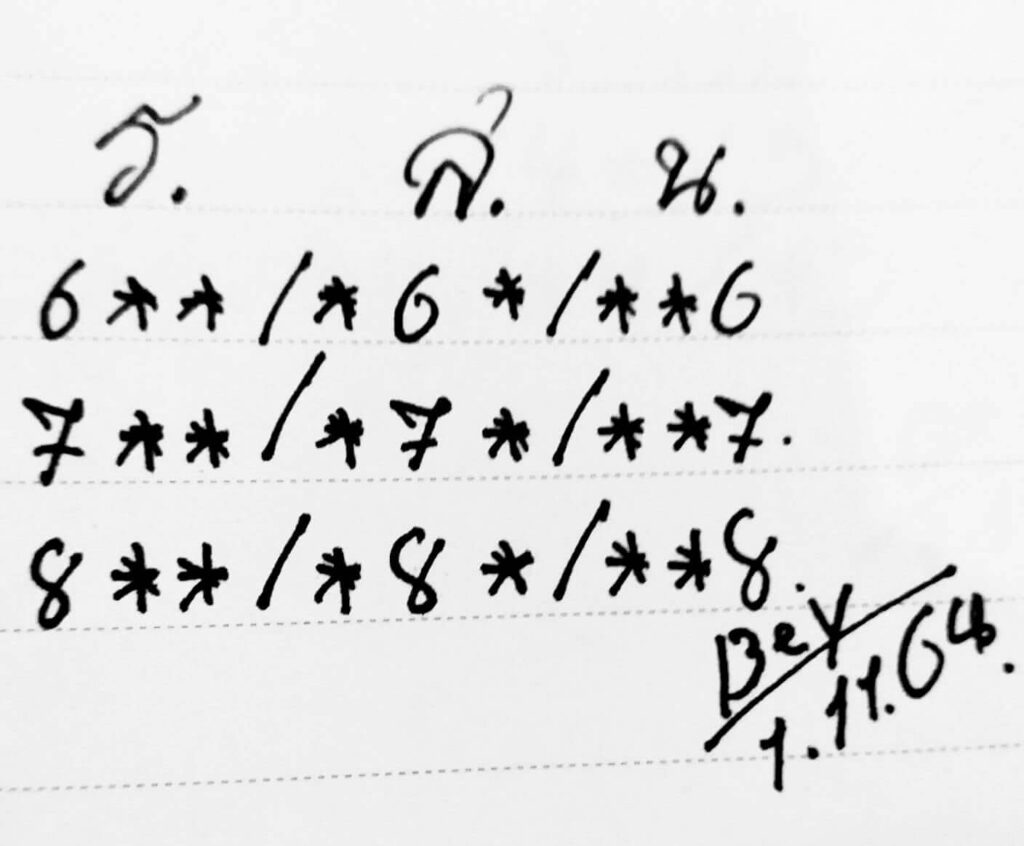 ร. ส. น.
6**/*6*/**6
7**/*7*/**7.
8**/*8*/**8.
Bey
1.11.64.